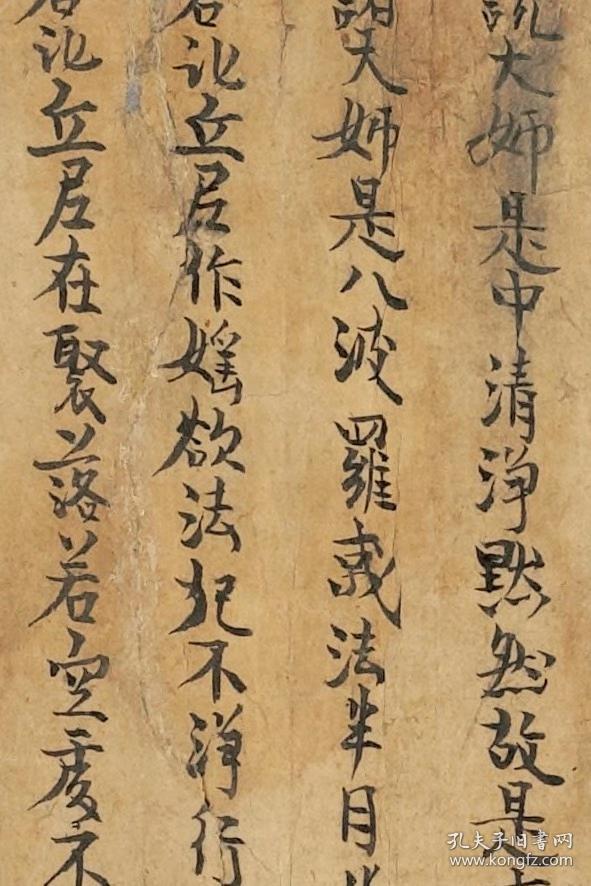 說大姉是中清淨默然故是
大姉是八波羅夷法半月
比丘尼作婬欲法犯不淨行
比丘尼在聚落若空處不
孔夫子旧书网
www.kongfz.com